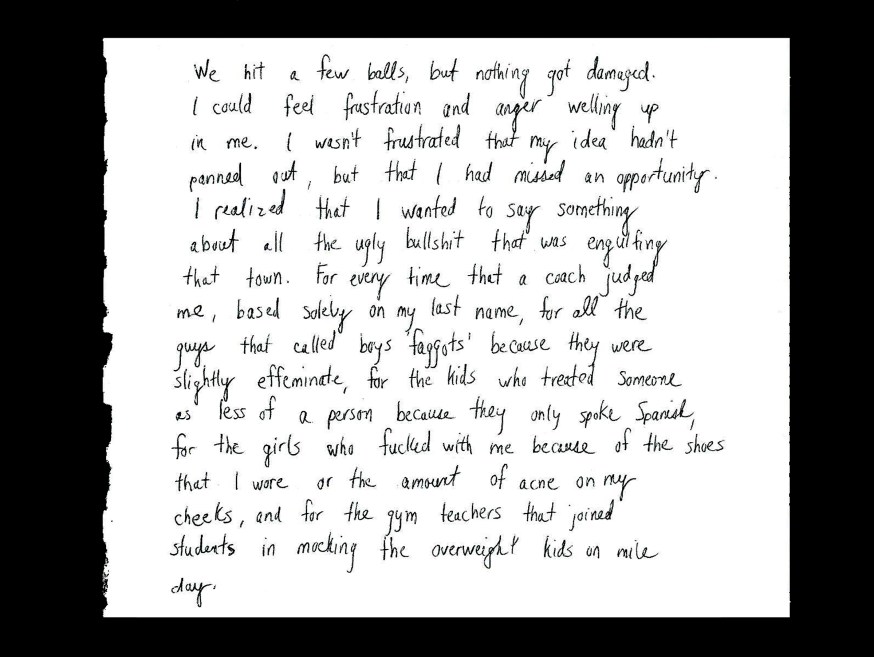 We hit a few balls, but nothing got damaged.
I could feel frustration and anger welling up
in me. I wasn't frustrated that my idea hadn't
panned out, but that I had missed an opportunity.
I realized that I wanted to say something
about all the ugly bullshit that was engulfing
that town. For every time that a coach judged
me, based solely on my last name, for all the
guys that called boys 'faggots' because they were
slightly effeminate, for the kids who treated someone
as less of a person because they only spoke Spanish,
for the girls who fucked with me because of the shoes
that I wore or the amount of acne on my
cheeks, and for the gym teachers that joined
students in mocking the overweight kids on mile
day.